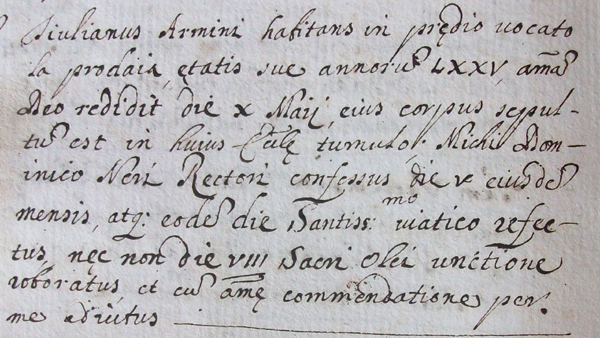 Giulianus Armini habitans in prędio vocato
la prodaia, ętatis suę annorũ LXXV, amã
Deo reddidit die X Maij, eius corpus sepul-
tũ est in huius Ecclę tumulo; Michi Dom-
inico Neri Rectori confessus die V eiusdẽ
mensis, atq; eodẽ die Santiss:mo viatico refec-
tus, nęc non die VIII Sacri Olei unctione
roboratus, et cũ amę commendatione per
me adiutus